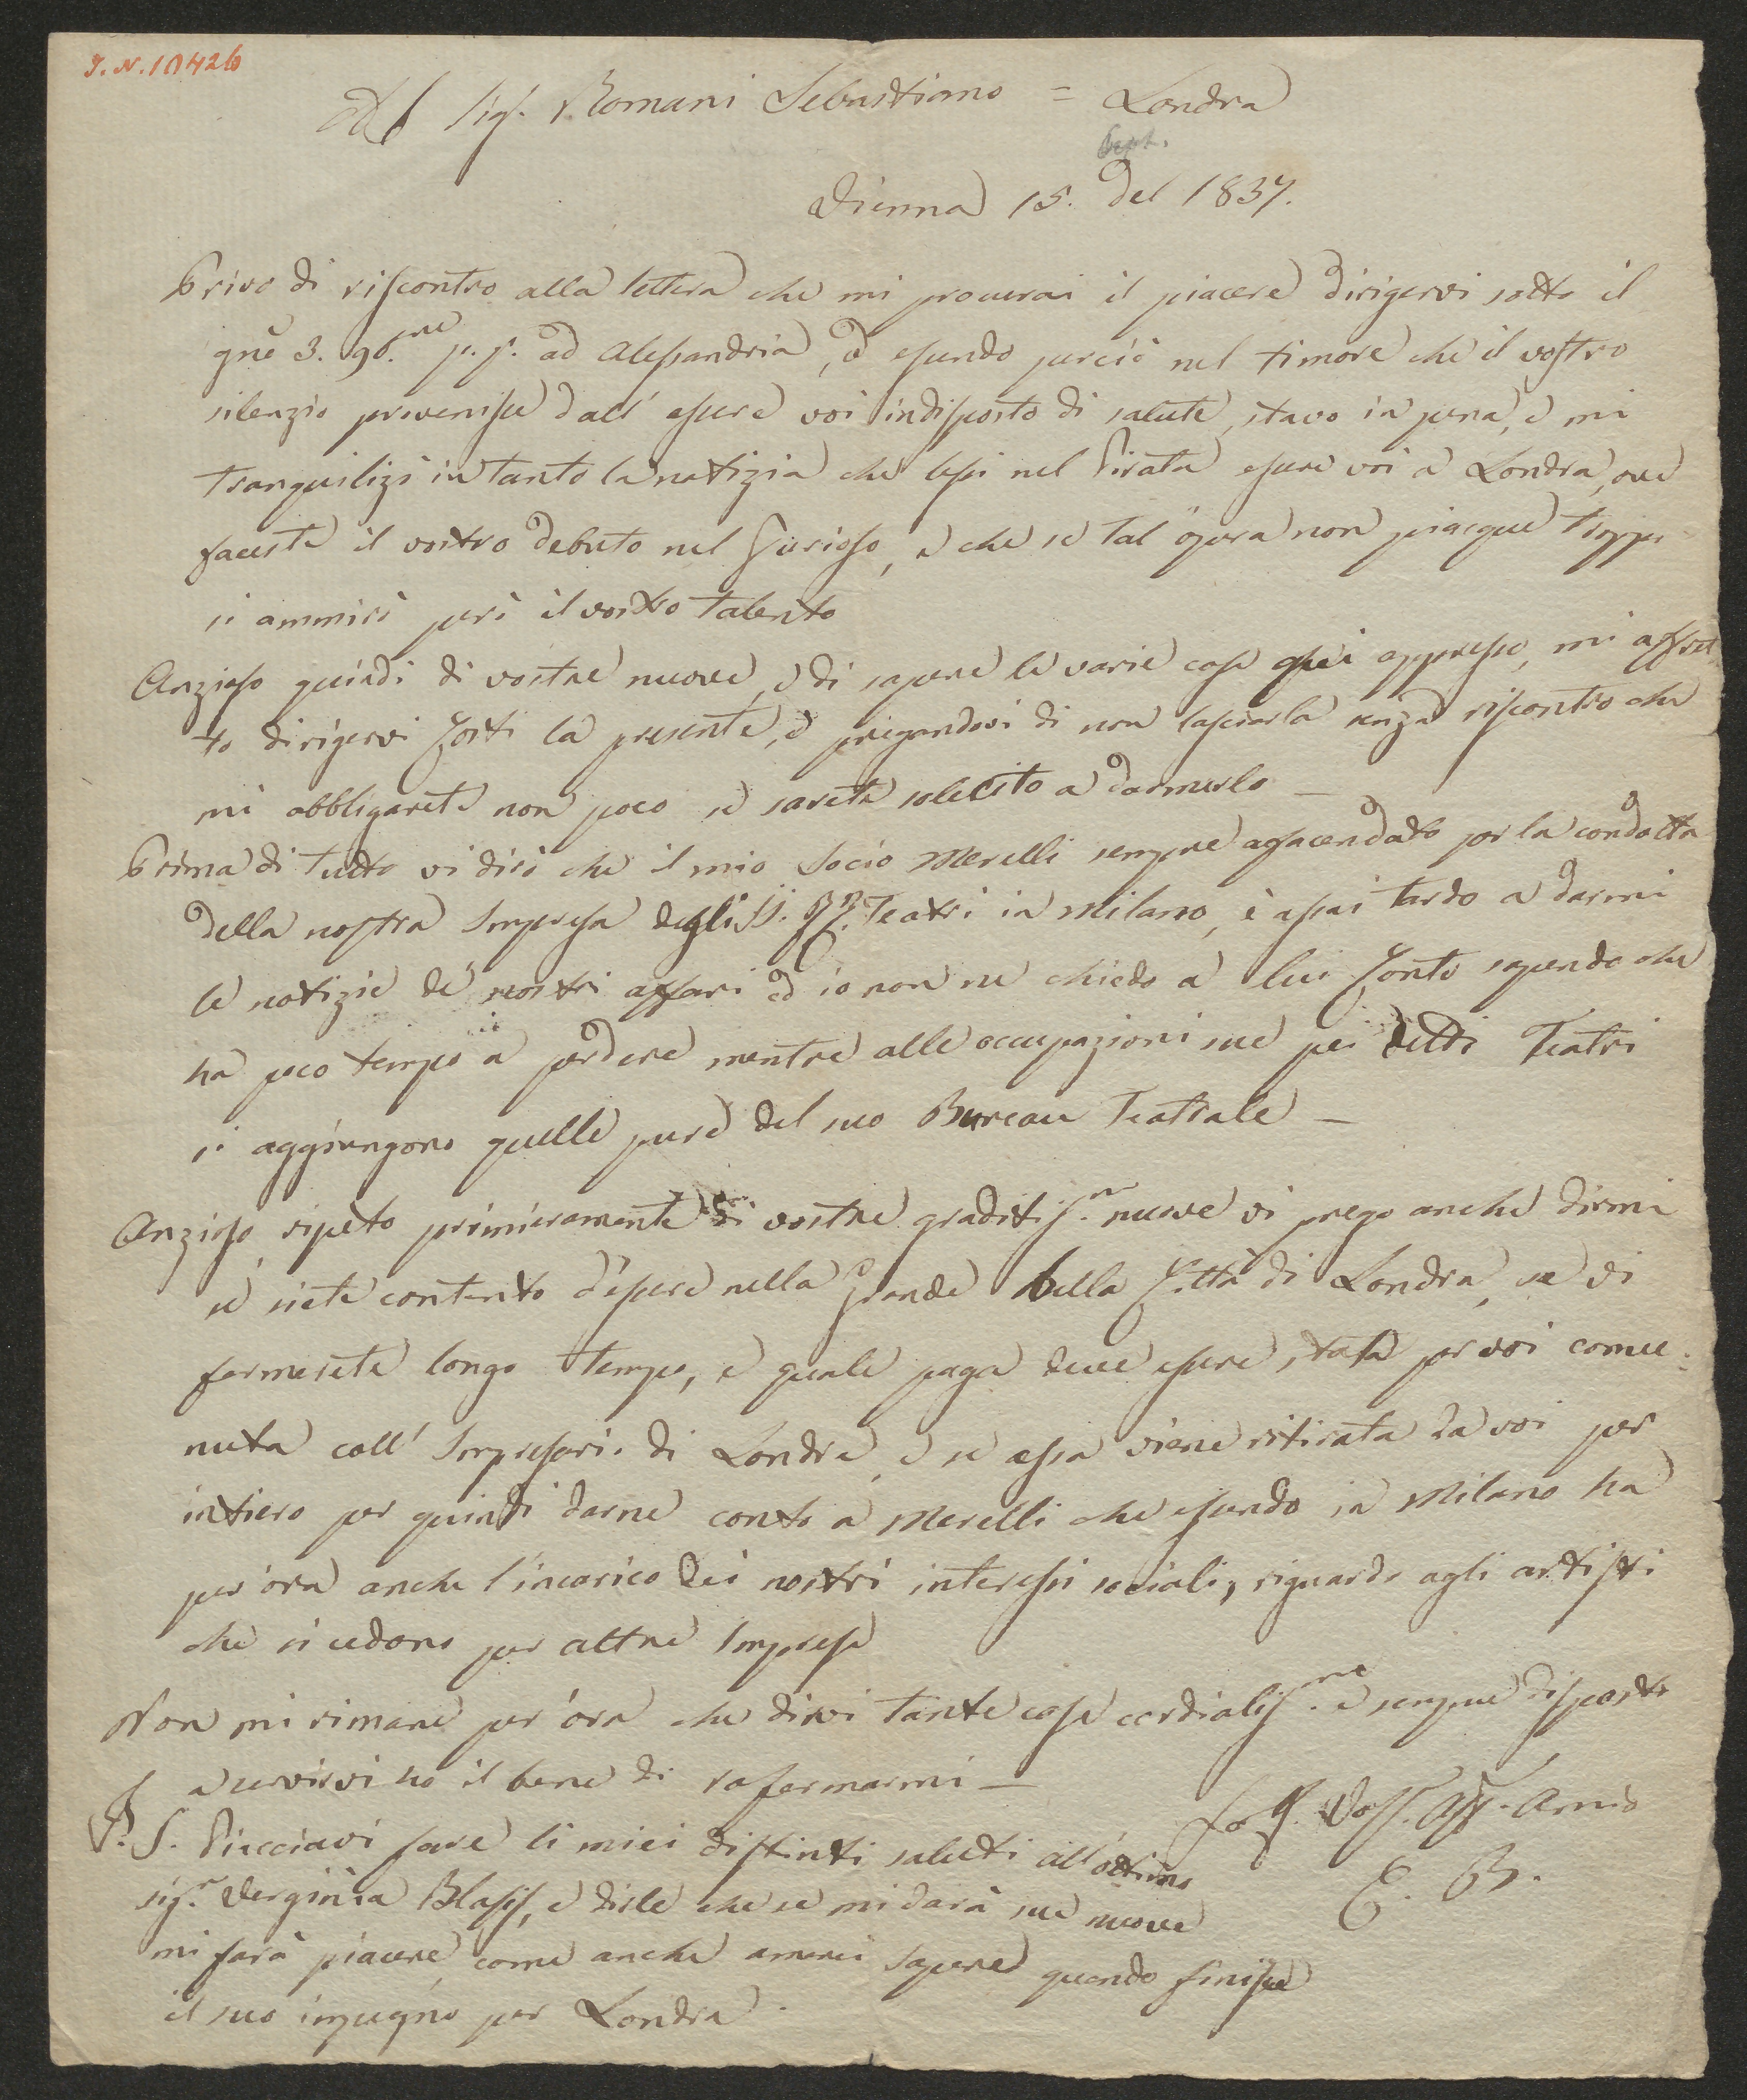 I. N. 10426
Al Sig. Romani Sebastiano = Londra
Sept.
Vienna 15. del 1837.
Privo di riscontro alla lettera che mi procurai il piacere dirigervi sotto il
gne 3. 96.me p. p. ad Alessandria, ed essendo perciò nel timore che il vostro
silenzio provenisse dall' essere voi indisposto di salute, stavo in pena, e mi
tranquilizò intanto la notizia che lessi nel Pirata essere voi a Londra, ove
faceste il vostro debuto nel Furioso, e che se tal' opera non piacque troppo
si ammirò però il vostro talento
Anzioso quindi di vostre nuove, e di sapere le varie cose appresso, mi affret
to dirigervi Costì la presente, e pregandovi di non lasciarla senza riscontro che
mi obbligarete non poco se sarete solecito a darmerlo —
Prima di tutto vi dirò che il mio Socio Merelli sempre afacendato per la condotta
della nostra Impresa degli II. RR. Teatri in Milano, è assai tardo a darmi
le notizie de' nostri affari ed io non ne chiedo a lui Conto sapendo che
ha poco tempo a perdere mentre alle occupazioni sue pei detti Teatri
si aggiungono quelle pure del suo Bureau Teatrale —
Anzioso, ripeto primieramente di vostre graditis.me nuove vi prego anche dirmi
se siete contento d'essere nella Grande bella Città di Londra, se vi
fermerete longo tempo, e quale paga deve essere stata per voi conve-
nuta coll' Impresario di Londra, e se essa viene ritirata da voi per
intiero per quindi darne conto a Merelli che essendo in Milano ha
per ora anche l'incarico dei nostri interessi sociali, riguardo agli artisti
che si cedono per altre Imprese
Non mi rimane per ora che dirvi tante cose cordialis.me e sempre disposto
a servirvi ho il bene di rafermarmi —
Vos. Aff. Amico
E. B.
P. S. Piacciavi fare li miei distinti saluti all' ottima
sig.ra Verginia Blasis, e dirle che se mi darà sue nuove
mi farà piacere, come anche amerei sapere quando finisse
il suo impegno per Londra.